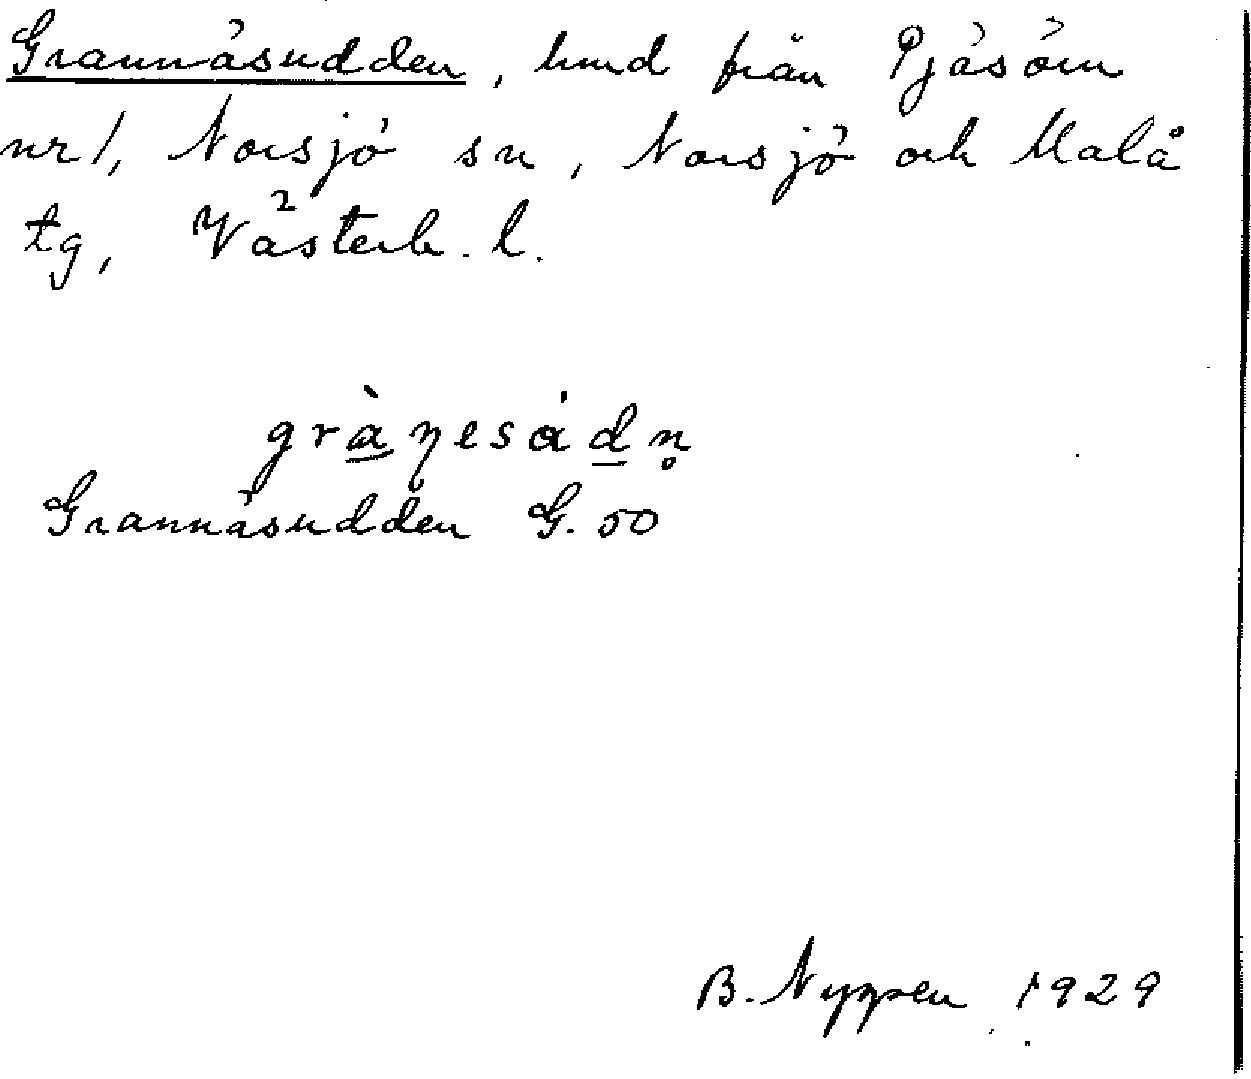 Grannäsudden, hmd från Pjäsörn
nr 1, Norsjö sn, Norsjö och Malå
tg, Västerb. l.
grànesádn̥
Grannäsudden G. 50
B. Nyysen 1929